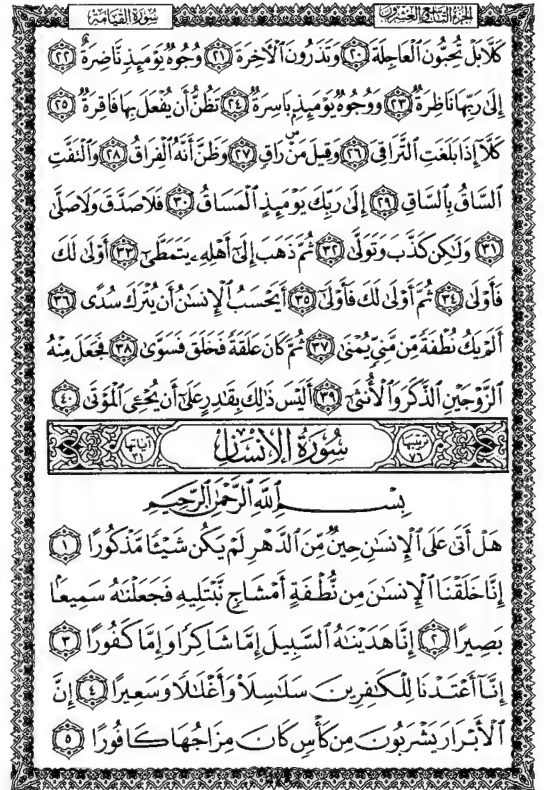 الجزء التاسع والعشرون سورة القيامة
كَلَّا بَلْ تُحِبُّونَ ٱلْعَاجِلَةَ ٢٠ وَتَذَرُونَ ٱلْءَاخِرَةَ ٢١ وُجُوهٌ يَوْمَئِذٍ نَّاضِرَةٌ ٢٢
إِلَىٰ رَبِّهَا نَاظِرَةٌ ٢٣ وَوُجُوهٌ يَوْمَئِذٍۭ بَاسِرَةٌ ٢٤ تَظُنُّ أَن يُفْعَلَ بِهَا فَاقِرَةٌ ٢٥
كَلَّآ إِذَا بَلَغَتِ ٱلتَّرَاقِىَ ٢٦ وَقِيلَ مَنْۜ رَاقٍ ٢٧ وَظَنَّ أَنَّهُ ٱلْفِرَاقُ ٢٨ وَٱلْتَفَّتِ
ٱلسَّاقُ بِٱلسَّاقِ ٢٩ إِلَىٰ رَبِّكَ يَوْمَئِذٍ ٱلْمَسَاقُ ٣٠ فَلَا صَدَّقَ وَلَا صَلَّىٰ
٣١ وَلَٰكِن كَذَّبَ وَتَوَلَّىٰ ٣٢ ثُمَّ ذَهَبَ إِلَىٰٓ أَهْلِهِۦ يَتَمَطَّىٰٓ ٣٣ أَوْلَىٰ لَكَ
فَأَوْلَىٰ ٣٤ ثُمَّ أَوْلَىٰ لَكَ فَأَوْلَىٰٓ ٣٥ أَيَحْسَبُ ٱلْإِنسَٰنُ أَن يُتْرَكَ سُدًى ٣٦
أَلَمْ يَكُ نُطْفَةً مِّن مَّنِىٍّ يُمْنَىٰ ٣٧ ثُمَّ كَانَ عَلَقَةً فَخَلَقَ فَسَوَّىٰ ٣٨ فَجَعَلَ مِنْهُ
ٱلزَّوْجَيْنِ ٱلذَّكَرَ وَٱلْأُنثَىٰٓ ٣٩ أَلَيْسَ ذَٰلِكَ بِقَٰدِرٍ عَلَىٰٓ أَن يُحْـِۧىَ ٱلْمَوْتَىٰ ٤٠
ترتيبها ٧٦ سُورَةُ الإِنسَانِ آياتها ٣١
بِسْمِ ٱللَّهِ ٱلرَّحْمَٰنِ ٱلرَّحِيمِ
هَلْ أَتَىٰ عَلَى ٱلْإِنسَٰنِ حِينٌ مِّنَ ٱلدَّهْرِ لَمْ يَكُن شَيْـًٔا مَّذْكُورًا ١
إِنَّا خَلَقْنَا ٱلْإِنسَٰنَ مِن نُّطْفَةٍ أَمْشَاجٍ نَّبْتَلِيهِ فَجَعَلْنَٰهُ سَمِيعًۢا
بَصِيرًا ٢ إِنَّا هَدَيْنَٰهُ ٱلسَّبِيلَ إِمَّا شَاكِرًا وَإِمَّا كَفُورًا ٣
إِنَّآ أَعْتَدْنَا لِلْكَٰفِرِينَ سَلَٰسِلَا۟ وَأَغْلَٰلًا وَسَعِيرًا ٤ إِنَّ
ٱلْأَبْرَارَ يَشْرَبُونَ مِن كَأْسٍ كَانَ مِزَاجُهَا كَافُورًا ٥